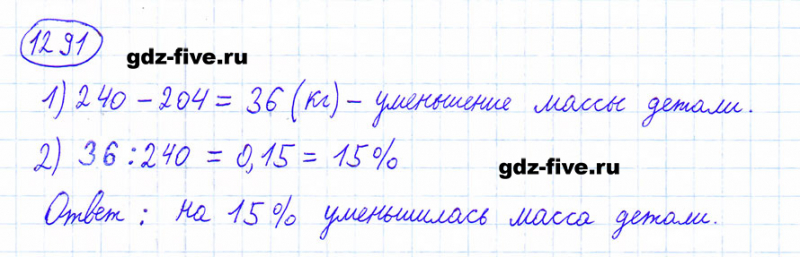 1291
gdz-five.ru
1) 240 - 204 = 36 (кг) - уменьшение массы детали.
2) 36 : 240 = 0,15 = 15%
gdz-five.ru
Ответ : на 15% уменьшилась масса детали.